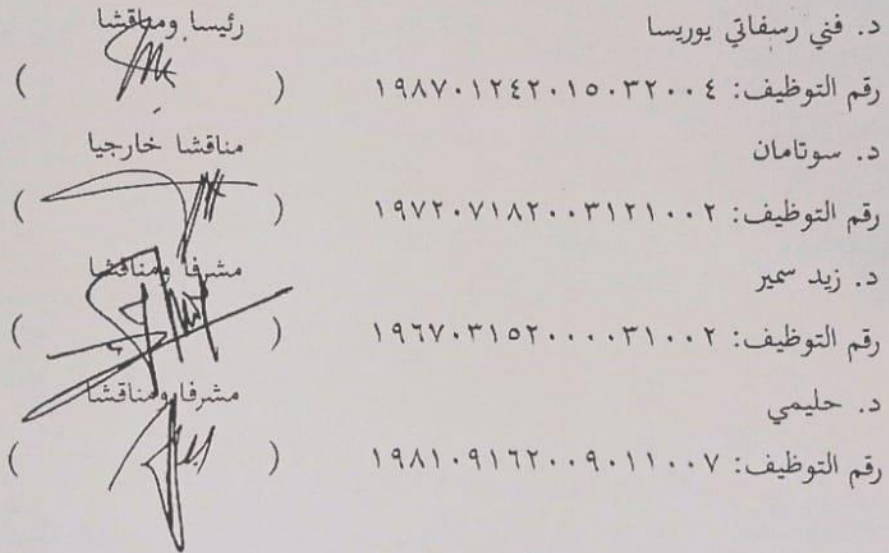 د. فني رسفاتي يوريسا رئيسا ومناقشا
رقم التوظيف: ١٩٨٧٠١٢٤٢٠١٥٠٣٢٠٠٤ ( )
د. سوتامان مناقشا خارجيا
رقم التوظيف: ١٩٧٢٠٧١٨٢٠٠٣١٢١٠٠٢ ( )
د. زيد سمير مشرفا ومناقشا
رقم التوظيف: ١٩٦٧٠٣١٥٢٠٠٠٠٣١٠٠٢ ( )
د. حليمي مشرفا ومناقشا
رقم التوظيف: ١٩٨١٠٩١٦٢٠٠٩٠١١٠٠٧ ( )